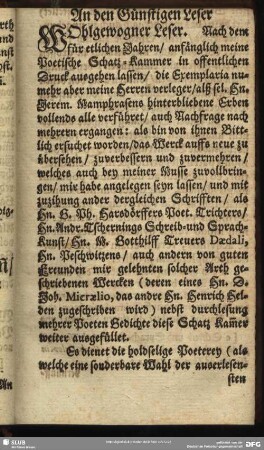 An den Günstigen Leser
WOhlgewogner Leser. Nach dem
für etlichen Jahren/ anfänglich meine
Poetische Schatz-Kammer in offentlichen
Druck ausgehen lassen/ die Exemplaria nu-
mehr aber meine Herren verleger/alß sel. Hn.
Jerem. Mamphrasens hinterbliebene Erben
vollends alle verführet/ auch Nachfrage nach
mehrern ergangen: als bin von ihnen Bitt-
lich ersuchet worden/das Werck auffs neue zu
übersehen/ zuverbessern und zuvermehren/
welches auch bey meiner Muse zuvollbrin-
gen/ mir habe angelegen seyn lassen/ und mit
zuziehung ander dergleichen Schrifften/ als
Hn. G. Ph. Harsdörffers Poet. Trichters/
Hn. Andr. Tschernings Schreib-und Sprach-
Kunst/ Hn. M. Gotthilff Treuers Dædali,
Hn. Peschwitzens/ auch andern von guten
Freunden mir gelehnten solcher Arth ge-
schriebenen Wercken (deren eines Hn. D.
Joh. Micrælio, das andre Hn. Henrich Hel-
den zugeschrieben wird) nebst durchlesung
mehrer Poeten Gedichte diese Schatz Kam̃er
weiter ausgefüllet.
Es dienet die holdselige Poeterey (als
welche eine sonderbare Wahl der auserlesen-
sten